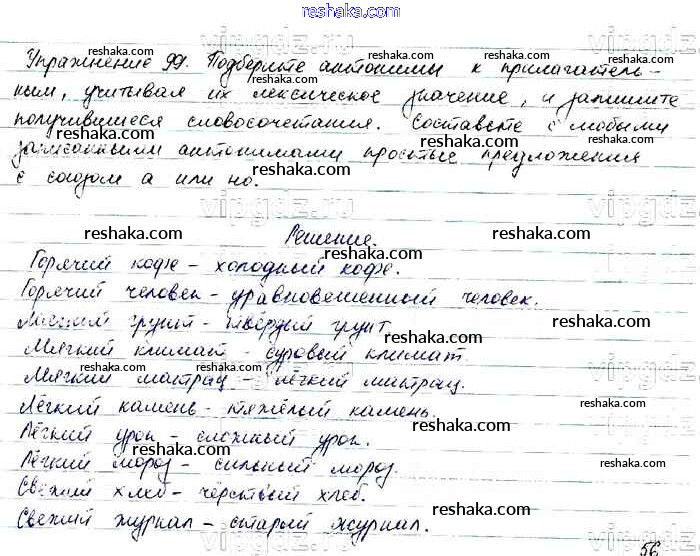 reshaka.com
Упражнение 99. Подберите антонимы к прилагатель-
ным, учитывая их лексическое значение, и запишите
получившиеся словосочетания. Составьте с любыми
записанными антонимами простые предложения
с союзом а или но.
Решение.
Горячий кофе - холодный кофе.
Горячий человек - уравновешенный человек.
Мягкий грунт - твёрдый грунт
Мягкий климат - суровый климат.
Мягкий матрац - лёгкий матрац.
Лёгкий камень - тяжёлый камень.
Лёгкий урок - сложный урок.
Лёгкий мороз - сильный мороз.
Свежий хлеб - чёрствый хлеб.
Свежий журнал - старый журнал.
56